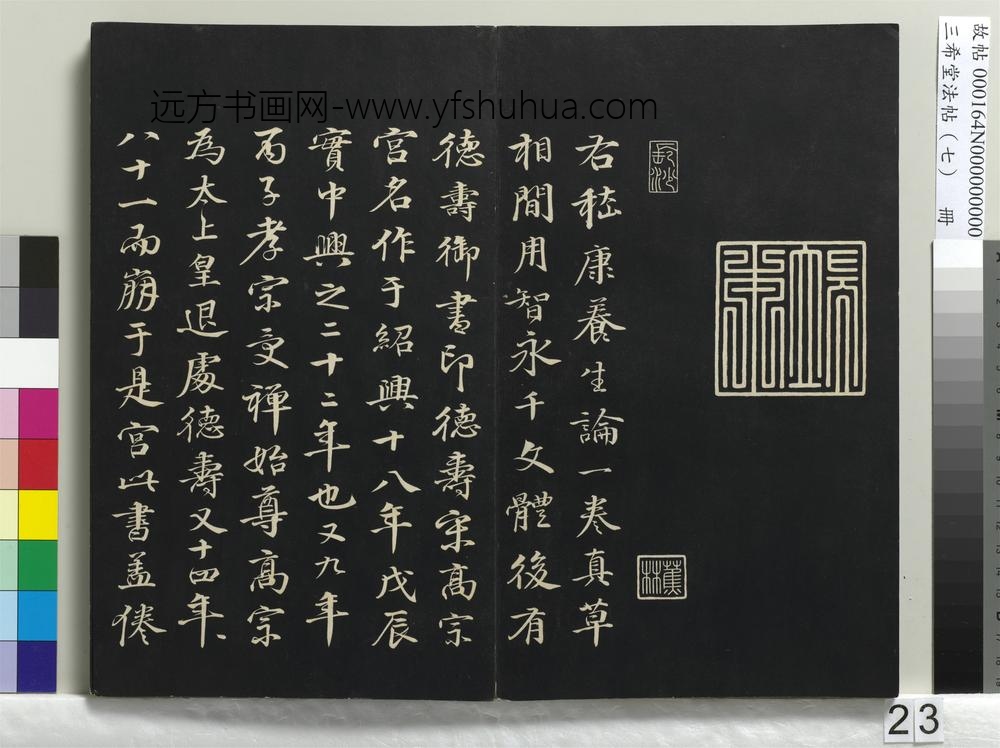 远方书画网-www.yfshuhua.com
故帖 000164N000000000
三希堂法帖(七) 冊
長沙
蕉林
右嵇康養生論一卷真草
相間用智永千文體後有
德壽御書印德壽宋高宗
宮名作于紹興十八年戊辰
實中興之二十二年也又九年
丙子孝宗受禪始尊高宗
為太上皇退處德壽又十四年
八十一而崩于是宮此書蓋倦
23